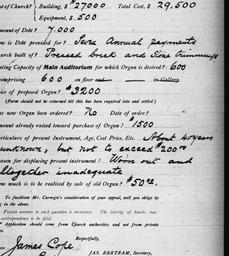 st of Church? Building, $27000 Total Cost, $29,500
Equipment, $500
mount of Debt? 7.000
w is Debt provided for? Semi Annual payments
urch built of? Pressed brick and Stone trimmings
ating Capacity of Main Auditorium for which Organ is desired? 600
omprising 600 on floor in Gallery.
ice of proposed Organ? $3200
(Form should not be returned till this has been inquired into and settled)
as new Organ been ordered? No Date of order?
mount already raised toward purchase of Organ? $1500
rticulars of present Instrument, Age, Cost Price, Etc. About 40 years
unknown, but not to exceed $200.00
eason for displacing present instrument? Worn out and
altogether inadequate
ow much is to be realized by sale of old Organ? $50.00
To facilitate Mr. Carnegie's consideration of your appeal, will you oblige by
g in the above.
Precise answer to each question is necessary. The leaving of blanks may
correspondence to be ignored.
Application should come from Church authorities and not from private
Respectfully,
James Cope
JAS. BERTRAM, Secretary,